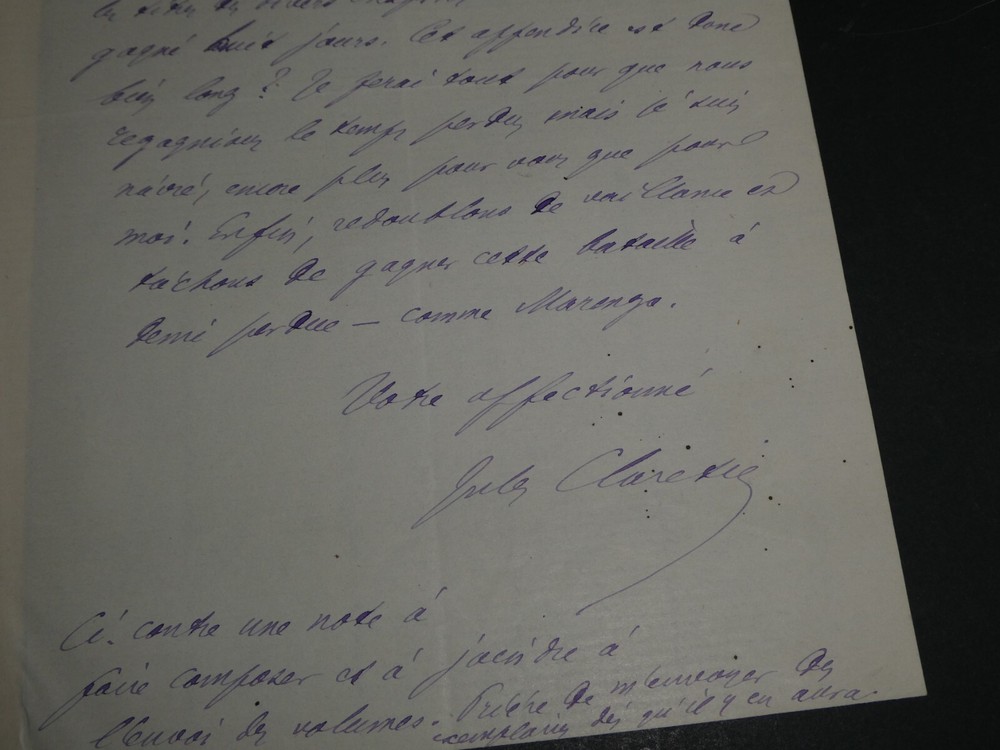 gagné huit jours. Cet appendice est donc
bien long ? Je ferai tout pour que nous
regagnions le temps perdu mais je suis
navré, encore plus pour vous que pour
moi. Enfin, redoublons de vaillance et
tâchons de gagner cette bataille à
demi perdue — comme Marengo.
Votre affectionné
Jules Claretie
Ci-contre une note à
faire composer et à joindre à
l'envoi des volumes. Prière de m'envoyer des
exemplaires dès qu'il y en aura